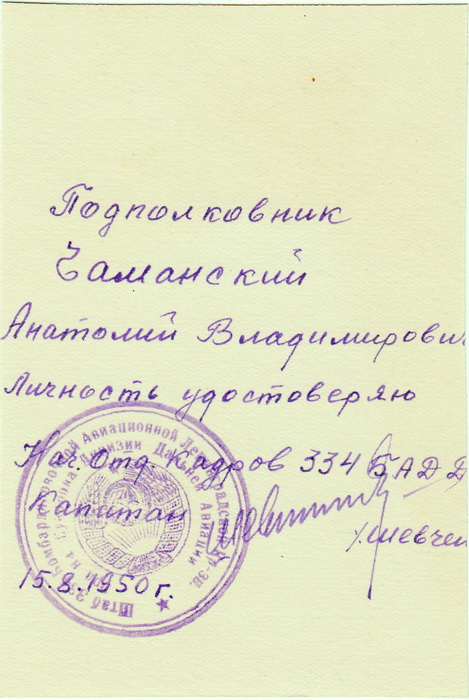 Подполковник
Чаманский
Анатолий Владимирович
Личность удостоверяю
Нач. Отд. Кадров 334 БАДД
Капитан
/.Шевчен
15.8.1950 г.
Штаб Бомбардировочной Авиационной Ленинградской
Дивизии Дальней Авиации